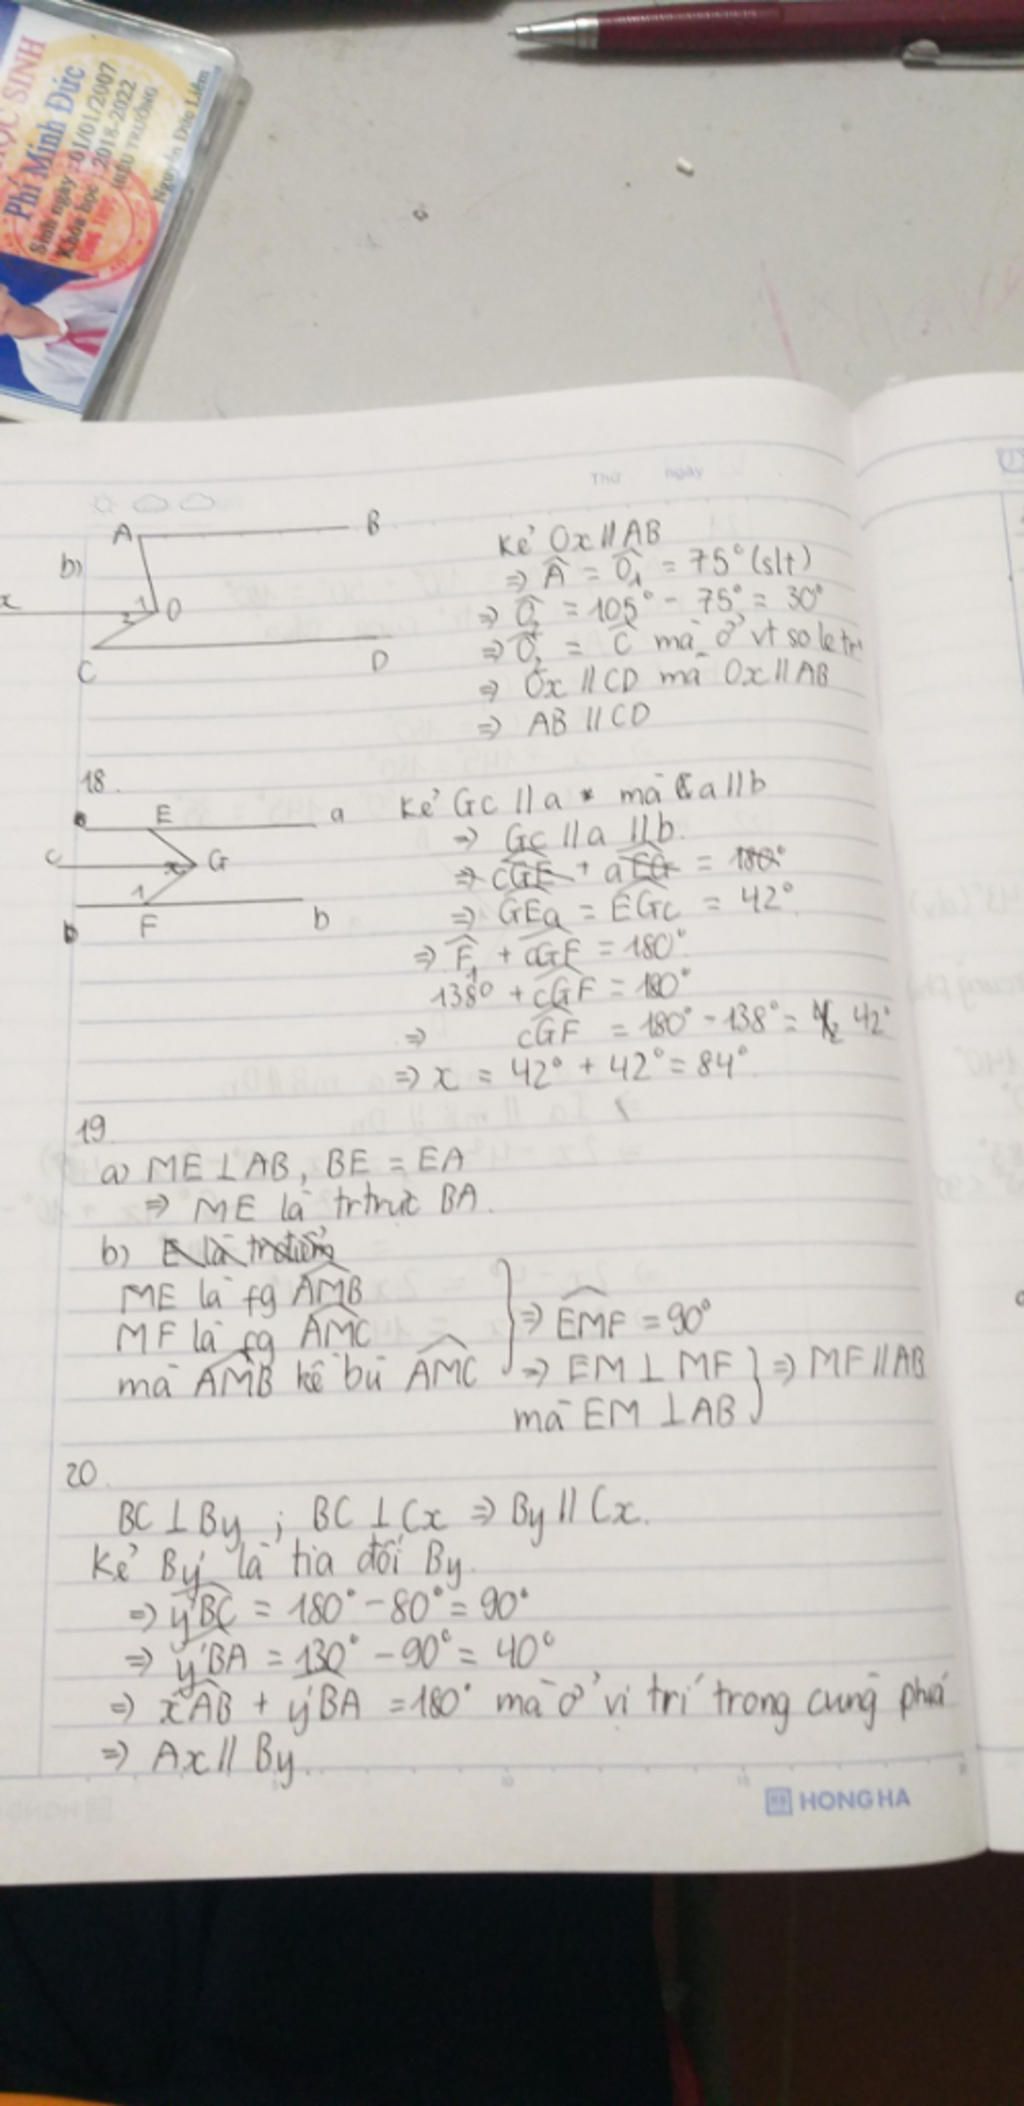 HỌC SINH
Phí Minh Đức
Sinh ngày: 01/01/2007
Khóa học: 2018-2022
HIỆU TRƯỞNG
Nguyễn Đức Liêm
Thứ ngày
b)
A B
x 1 2 O
C D
Kẻ Ox // AB
=> Â = Ô₁ = 75° (slt)
=> Ô₂ = 105° - 75° = 30°
=> Ô₂ = Ĉ mà ở vt so le tr
=> Ox // CD mà Ox // AB
=> AB // CD
18.
E a
c x G
1
F b
Kẻ Gc // a mà a // b
=> Gc // a // b.
=> cGE + aEG = 180°
=> GEa = EGc = 42°
=> F₁ + cGF = 180°
138° + cGF = 180°
=> cGF = 180° - 138° = 42°
=> x = 42° + 42° = 84°.
19
a) ME ⊥ AB, BE = EA
=> ME là trtrực BA.
b) E là trđiểm
ME là fg AMB
MF là fg AMC
mà AMB kề bù AMC
=> EMF = 90°
=> EM ⊥ MF
mà EM ⊥ AB
=> MF // AB
20.
BC ⊥ By ; BC ⊥ Cx => By // Cx.
Kẻ By' là tia đối By.
=> y'BC = 180° - 80° = 90°
=> y'BA = 130° - 90° = 40°
=> xAB + y'BA = 180° mà ở vị trí trong cùng phía
=> Ax // By.
HONG HA